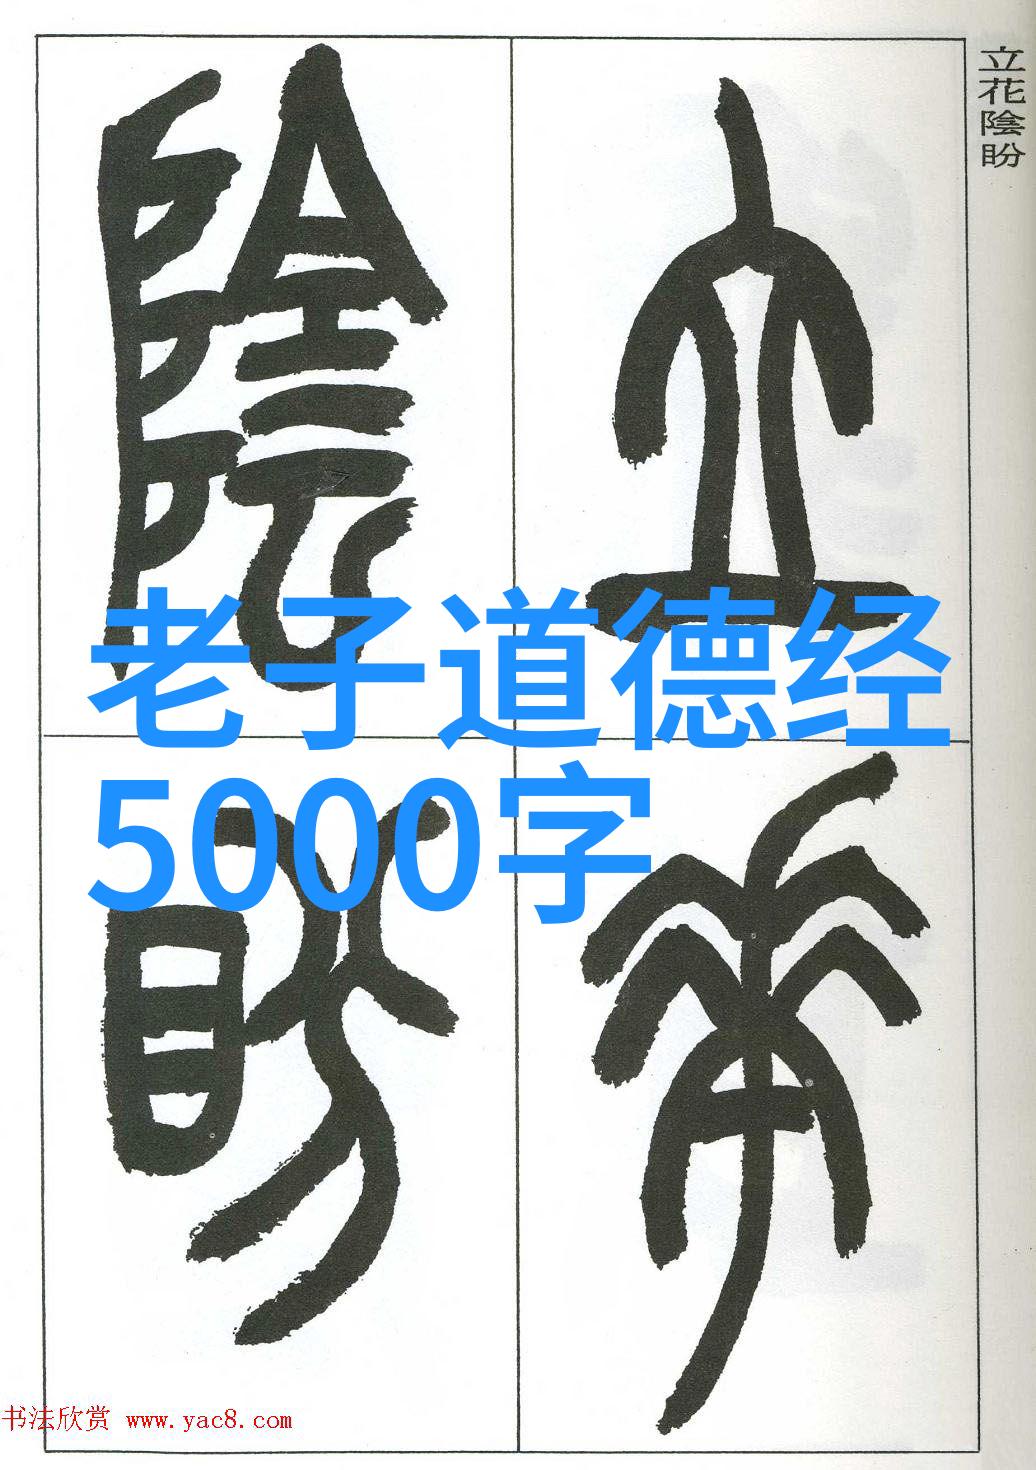 立花陰盼
立
花
陰
盼
老子道德经
5000字
书法欣赏 www.yac8.com